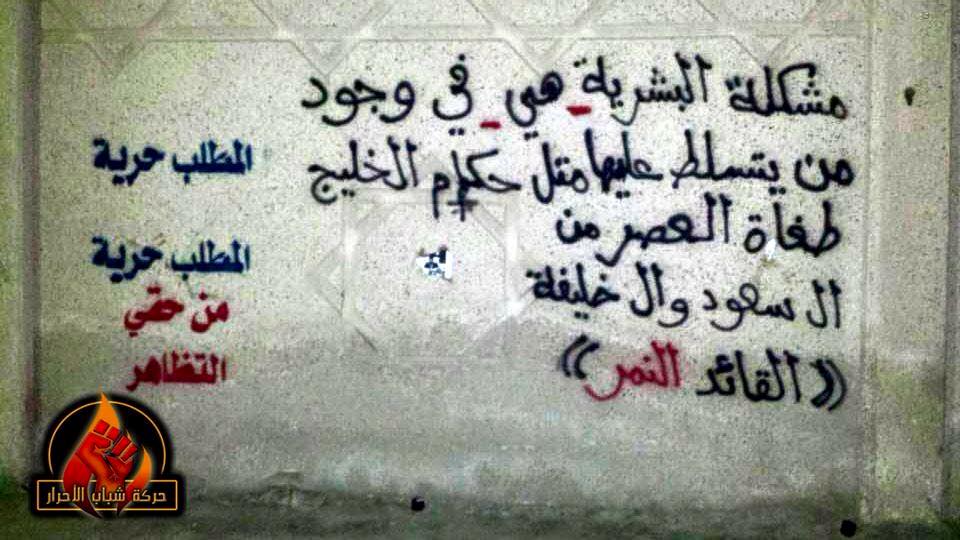 مشكلة البشرية هي في وجود
من يتسلط عليها مثل حكام الخليج
طغاة العصر من
ال سعود وال خليفة
((القائد النمر))
المطلب حرية
المطلب حرية
من حقي
التظاهر
حركة شباب الأحرار